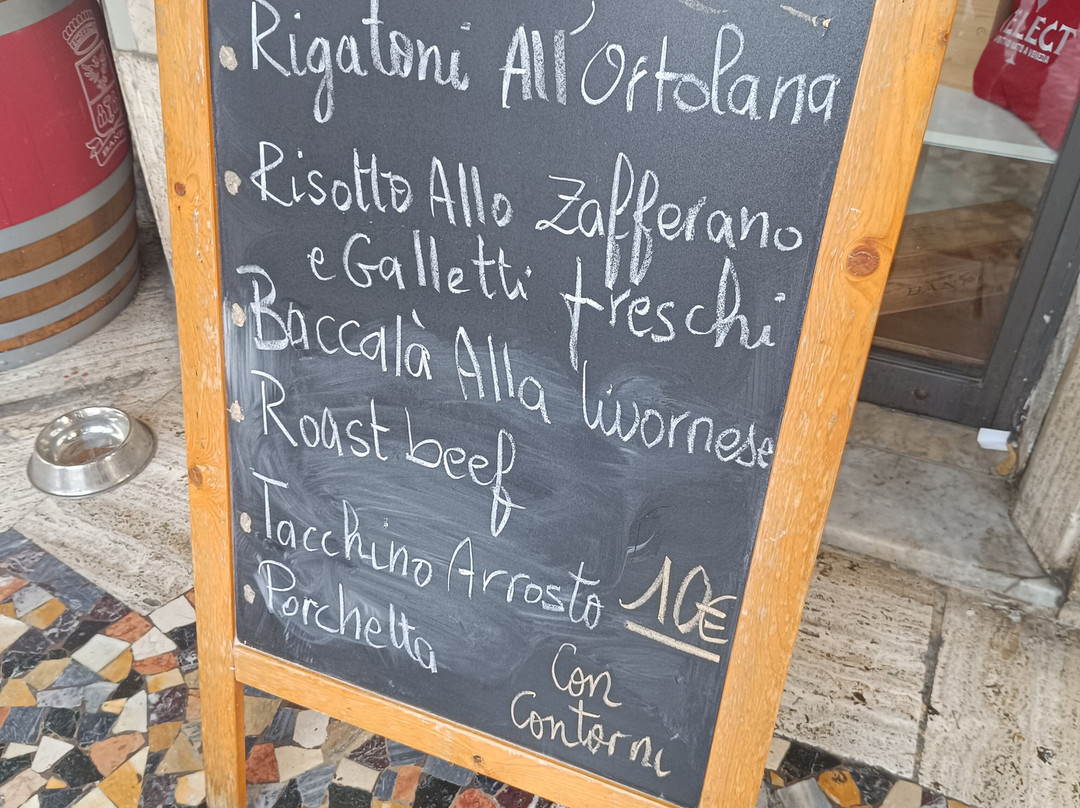 Rigatoni All'Ortolana
Risotto Allo Zafferano
e Galletti freschi
Baccalà Alla livornese
Roast beef
Tacchino Arrosto 10€
Porchetta
Con
Contorni